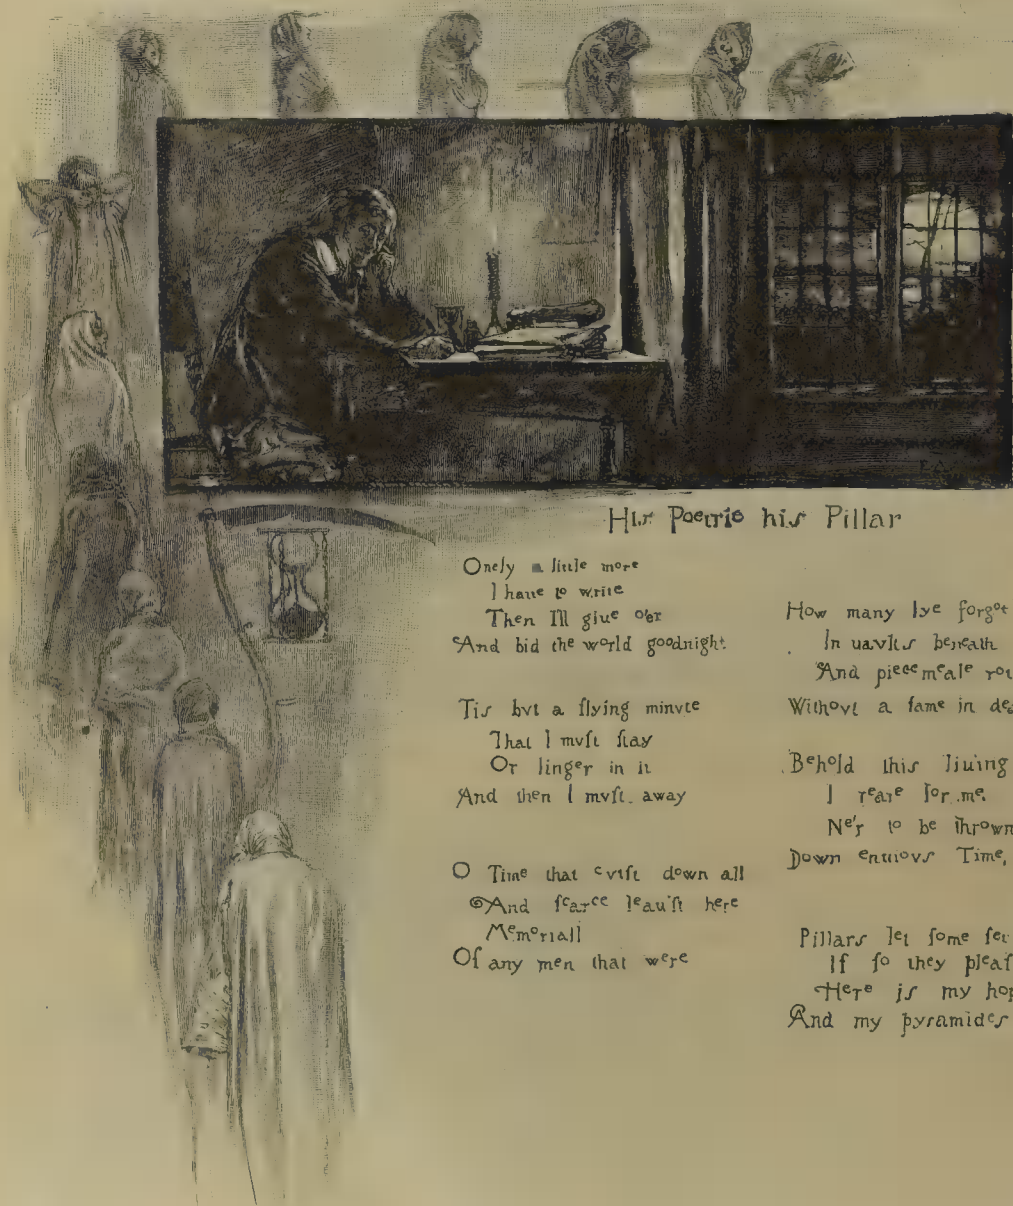 His Poetrie his Pillar
Onely a little more
I haue to write
Then I'll giue o'er
And bid the world goodnight.
Tis bvt a flying minvte
That I mvſt ſtay
Or linger in it
And then I mvſt away
O Time that cvtſt down all
And ſcarce leau'ſt here
Memoriall
Of any men that were
How many lye forgot
In uavlts beneath
And piecemeale
Withovt a fame in
Behold this liuing
I reare for me.
Ne'r to be thrown
Down enuiovs Time,
Pillars let ſome
If ſo they
Here is my
And my pyramides